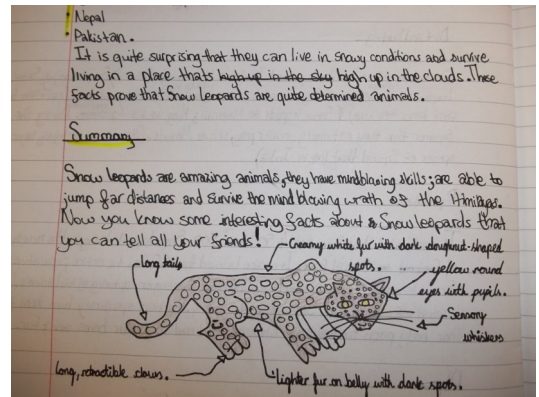 • Nepal
• Pakistan.
It is quite surprising that they can live in snowy conditions and survive
living in a place thats high up in the sky high up in the clouds. These
facts prove that Snow Leopards are quite determined animals.
Summary
Snow leopards are amazing animals, they have mindblowing skills; are able to
jump far distances and survive the mind blowing wrath of the
Now you know some interesting facts about Snow leopards that
you can tell all your friends!
Creamy white fur with dark doughnut-shaped
spots.
Long tails
yellow round
eyes with pupils.
Sensory
whiskers
Long, retractible claws.
Lighter fur on belly with dark spots.